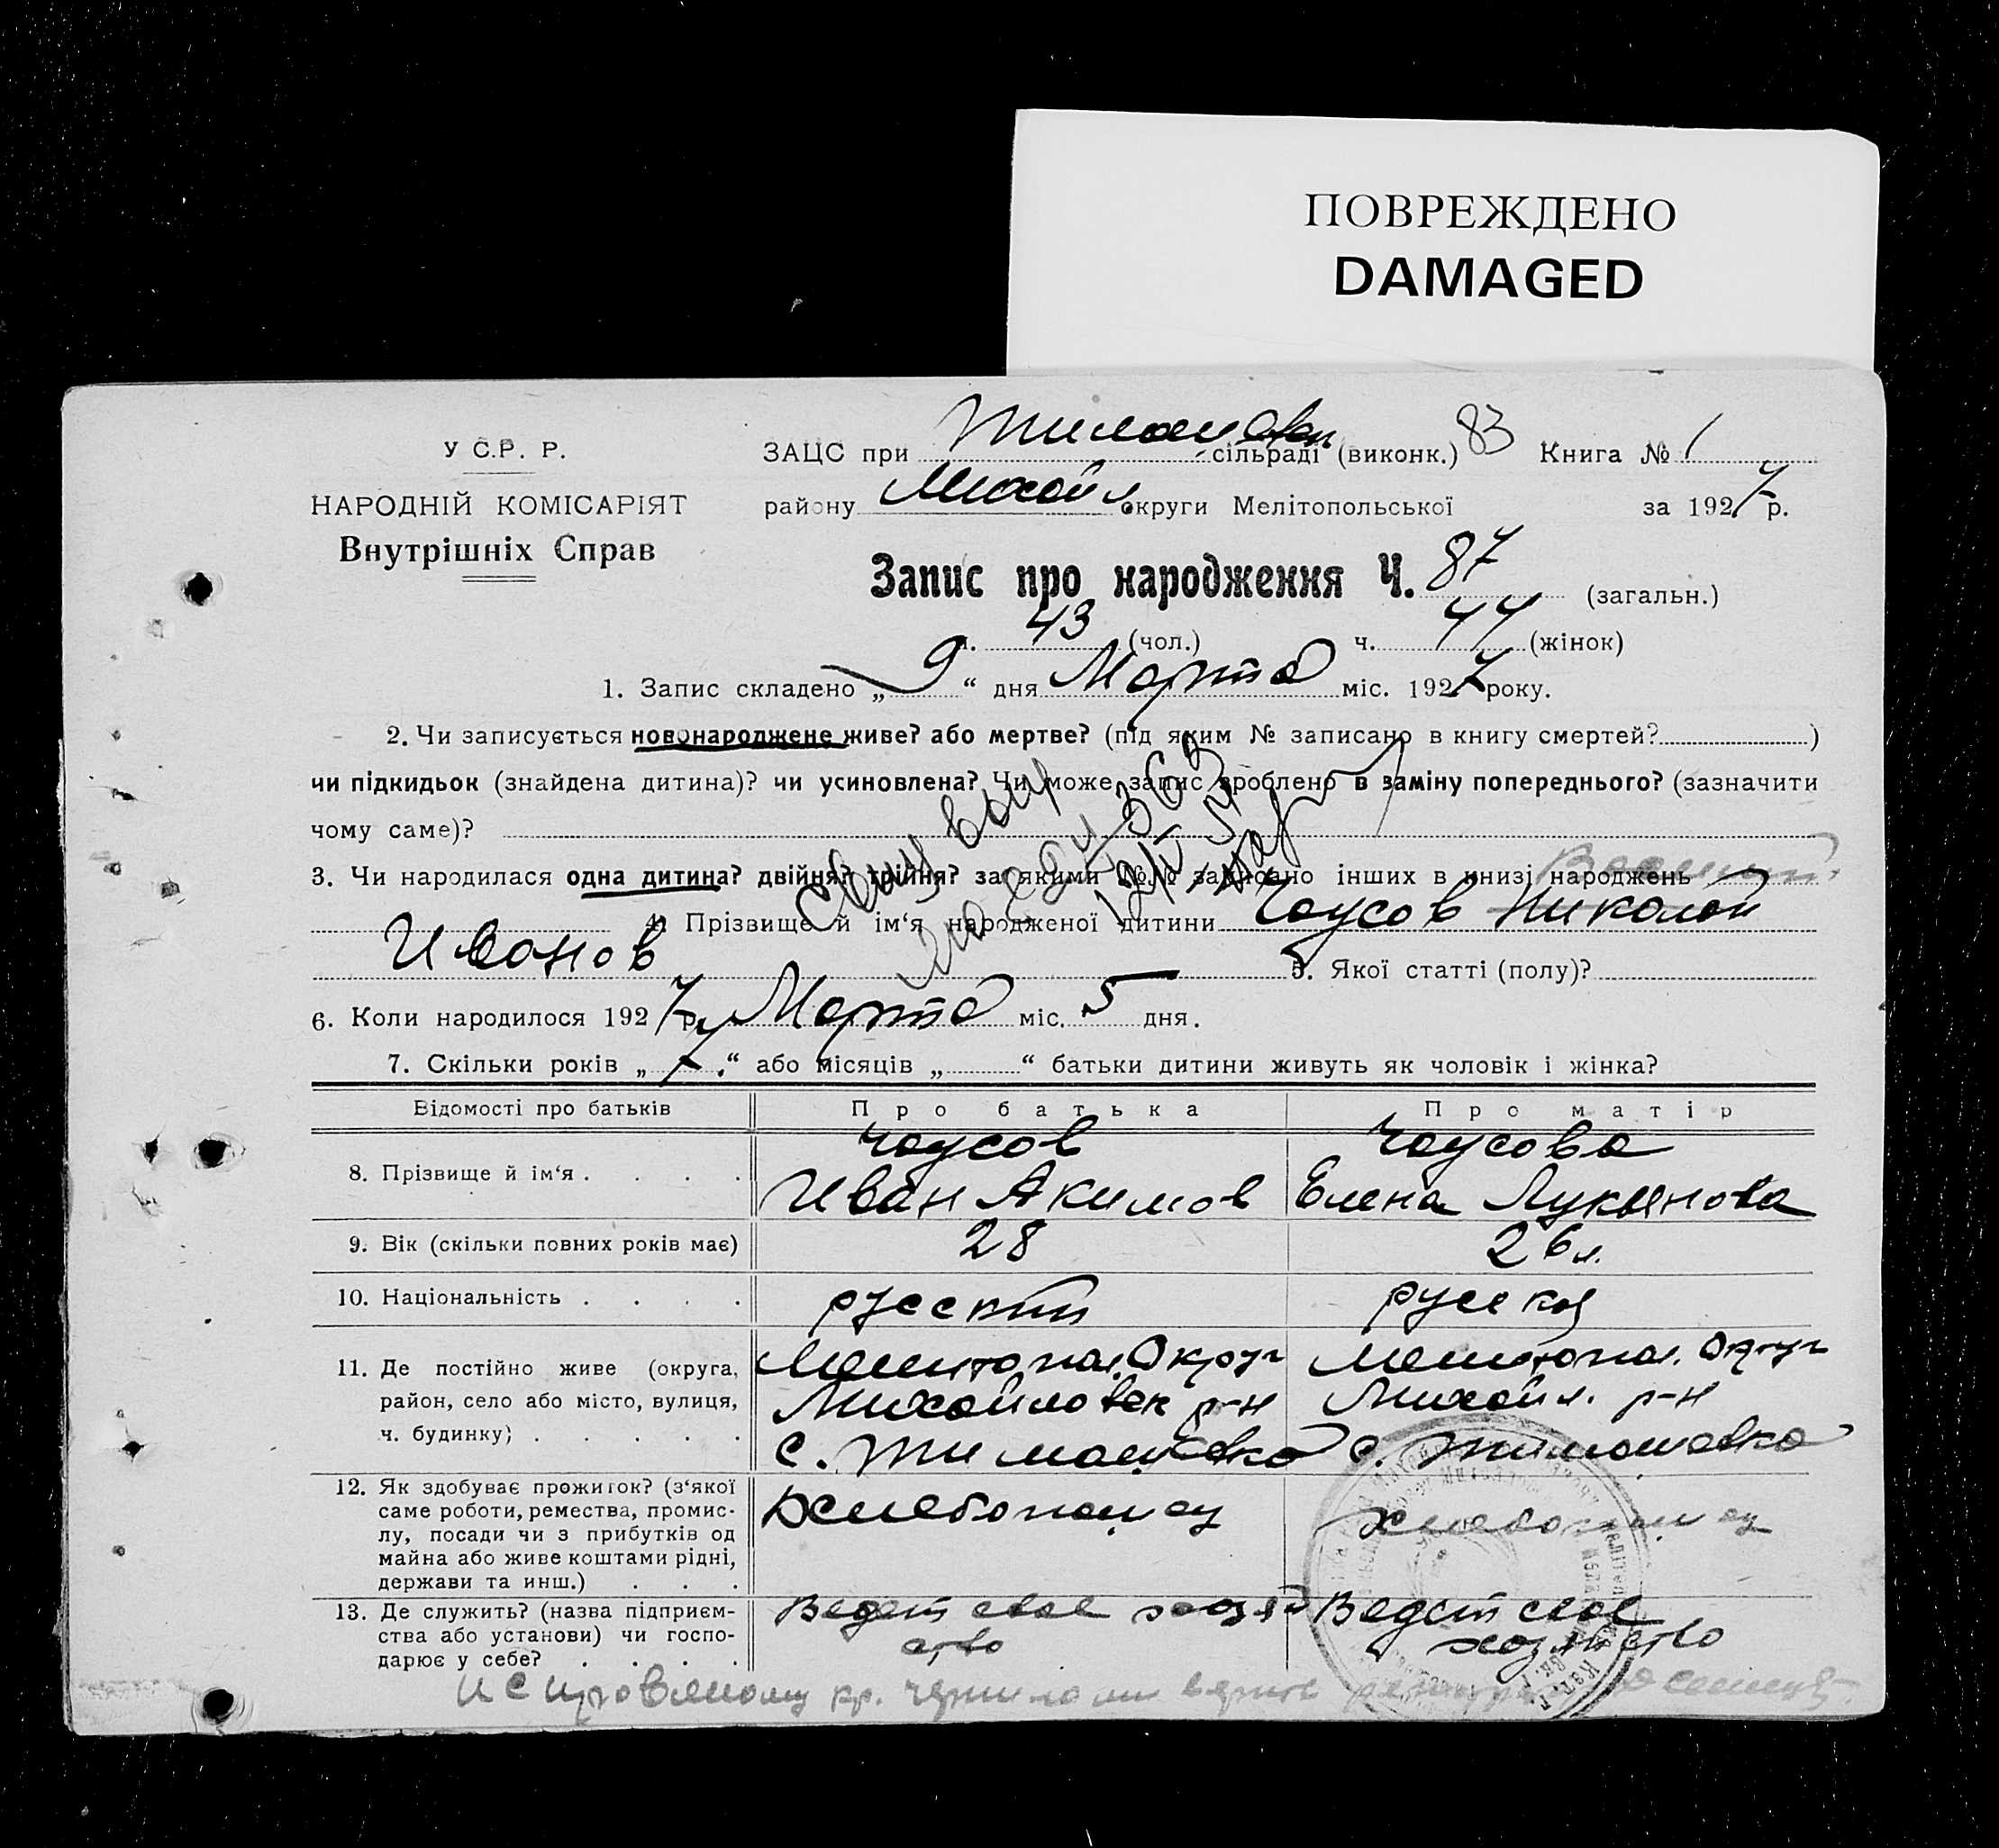 ПОВРЕЖДЕНО
DAMAGED
У С.Р. Р.
НАРОДНІЙ КОМІСАРІЯТ
Внутрішніх Справ
ЗАЦС при Тимашевск сільраді (виконк.) 83 Книга № 1
району Михайл округи Мелітопольської за 1927 р.
Запис про народження Ч. 87 (загальн.)
ч. 43 (чол.) ч. 44 (жінок)
1. Запис складено „ 9 “ дня Марта міс. 1927 року.
2. Чи записується новонароджене живе? або мертве? (під яким № записано в книгу смертей? )
чи підкидьок (знайдена дитина)? чи усиновлена? Чи може запис зроблено в заміну попереднього? (зазначити
чому саме)?
3. Чи народилася одна дитина? двійня? трійня? за якими №№ записано інших в книзі народжень
4. Прізвище й ім‘я народженої дитини Чаусов Николай
Иванов 5. Якої статті (полу)?
6. Коли народилося 1927 р. Марта міс. 5 дня.
7. Скільки років „ 7 “ або місяців „ “ батьки дитини живуть як чоловік і жінка?
Відомості про батьків Про батька Про матір
8. Прізвище й ім‘я . . . . Чаусов Иван Акимов Чаусова Елена Лукьянова
9. Вік (скільки повних років має) 28 26 л.
10. Національність . . . . русский русская
11. Де постійно живе (округа, Мелитопол. Округ Мелитопол. Округ
район, село або місто, вулиця, Михайловск р-н Михайл. р-н
ч. будинку) . . . . . с. Тимашевка с. Тимошевка
12. Як здобуває прожиток? (з‘якої Хлебопашец хлебопашец
саме роботи, ремества, промис-
лу, посади чи з прибутків од
майна або живе коштами рідні,
держави та инш.) . . .
13. Де служить? (назва підприєм- Ведет свое хозяй Ведет свое
ства або установи) чи госпо- ство хозяйство
дарює у себе? . . . .
Исправленому кр. чернилами верить